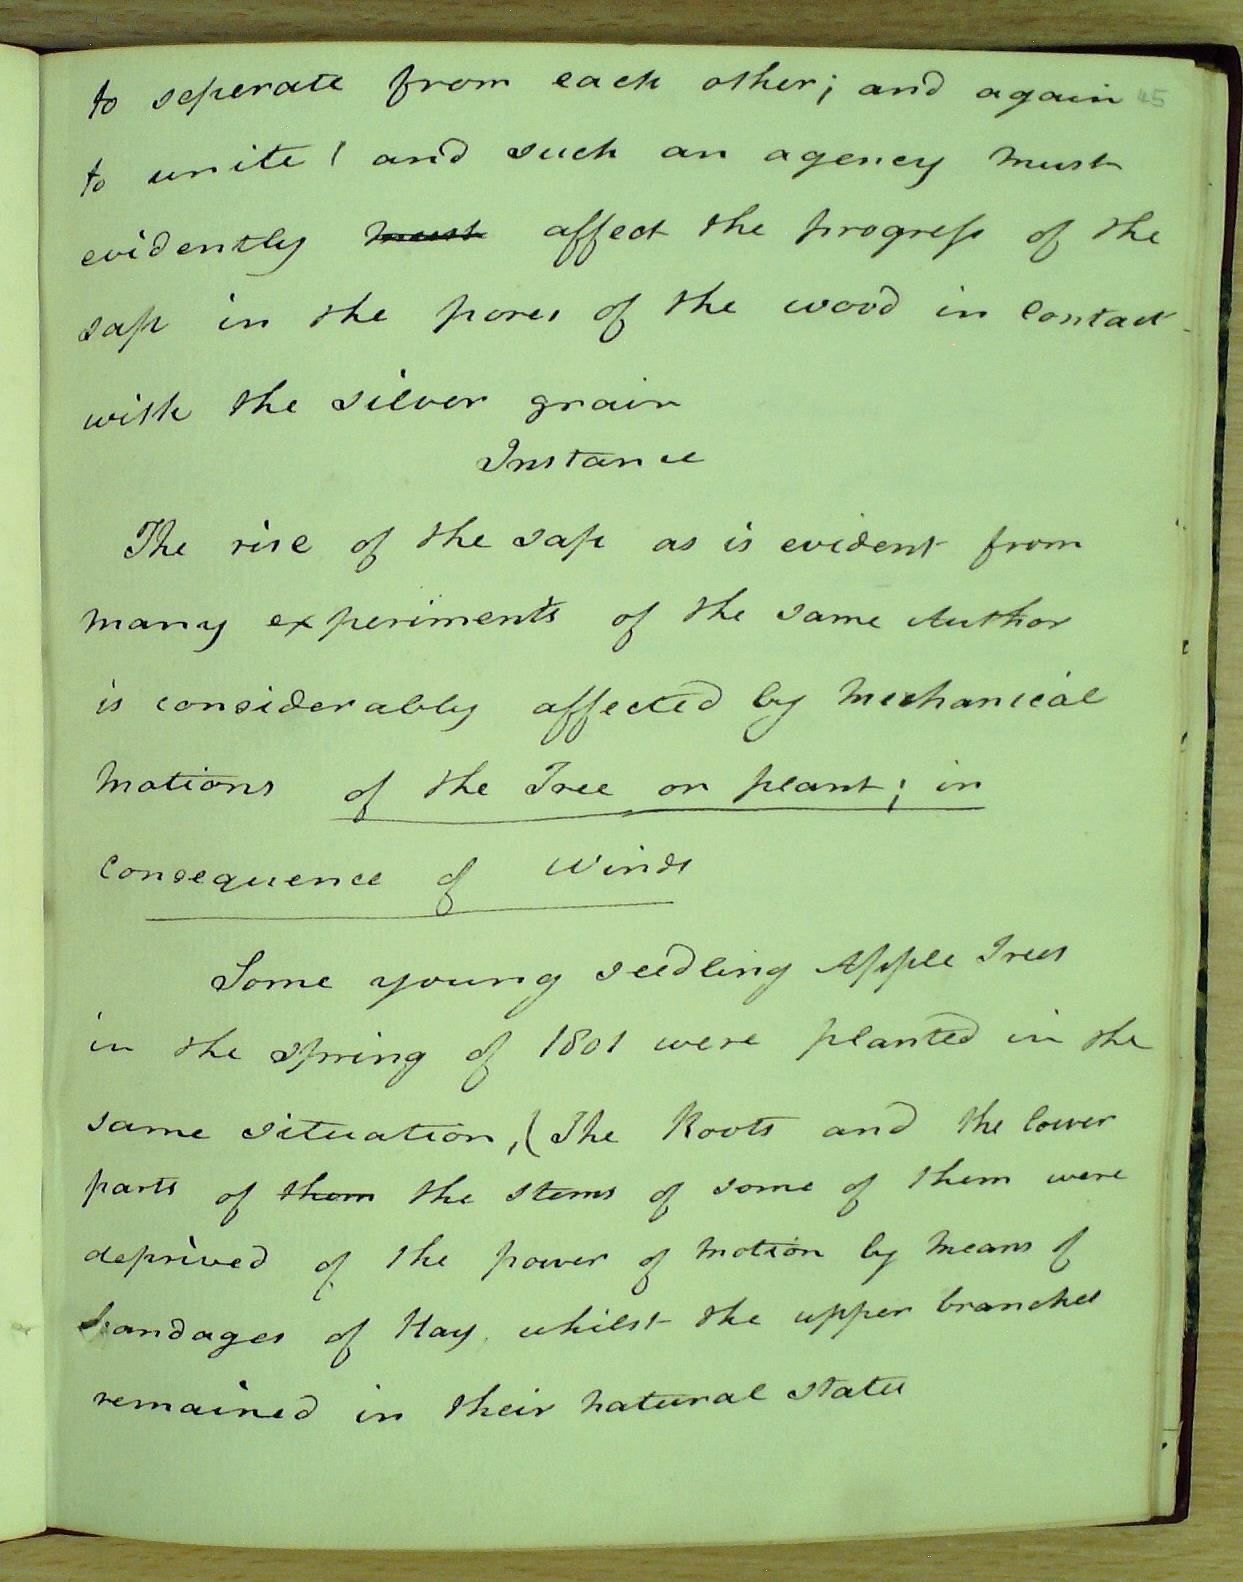 to seperate from each other; and again 45
to unite! and such an agency must
evidently must affect the progress of the
sap in the pores of the wood in contact
with the silver grain
Instance
The rise of the sap as is evident from
many experiments of the same Author
is considerably affected by mechanical
motions of the Tree or plant; in
consequence of Winds
Some young seedling Apple Trees
in the spring of 1801 were planted in the
same situation, (The Roots and the lower
parts of them the stems of some of them were
deprived of the power of motion by means of
bandages of Hay, whilst the upper branches
remained in their natural state